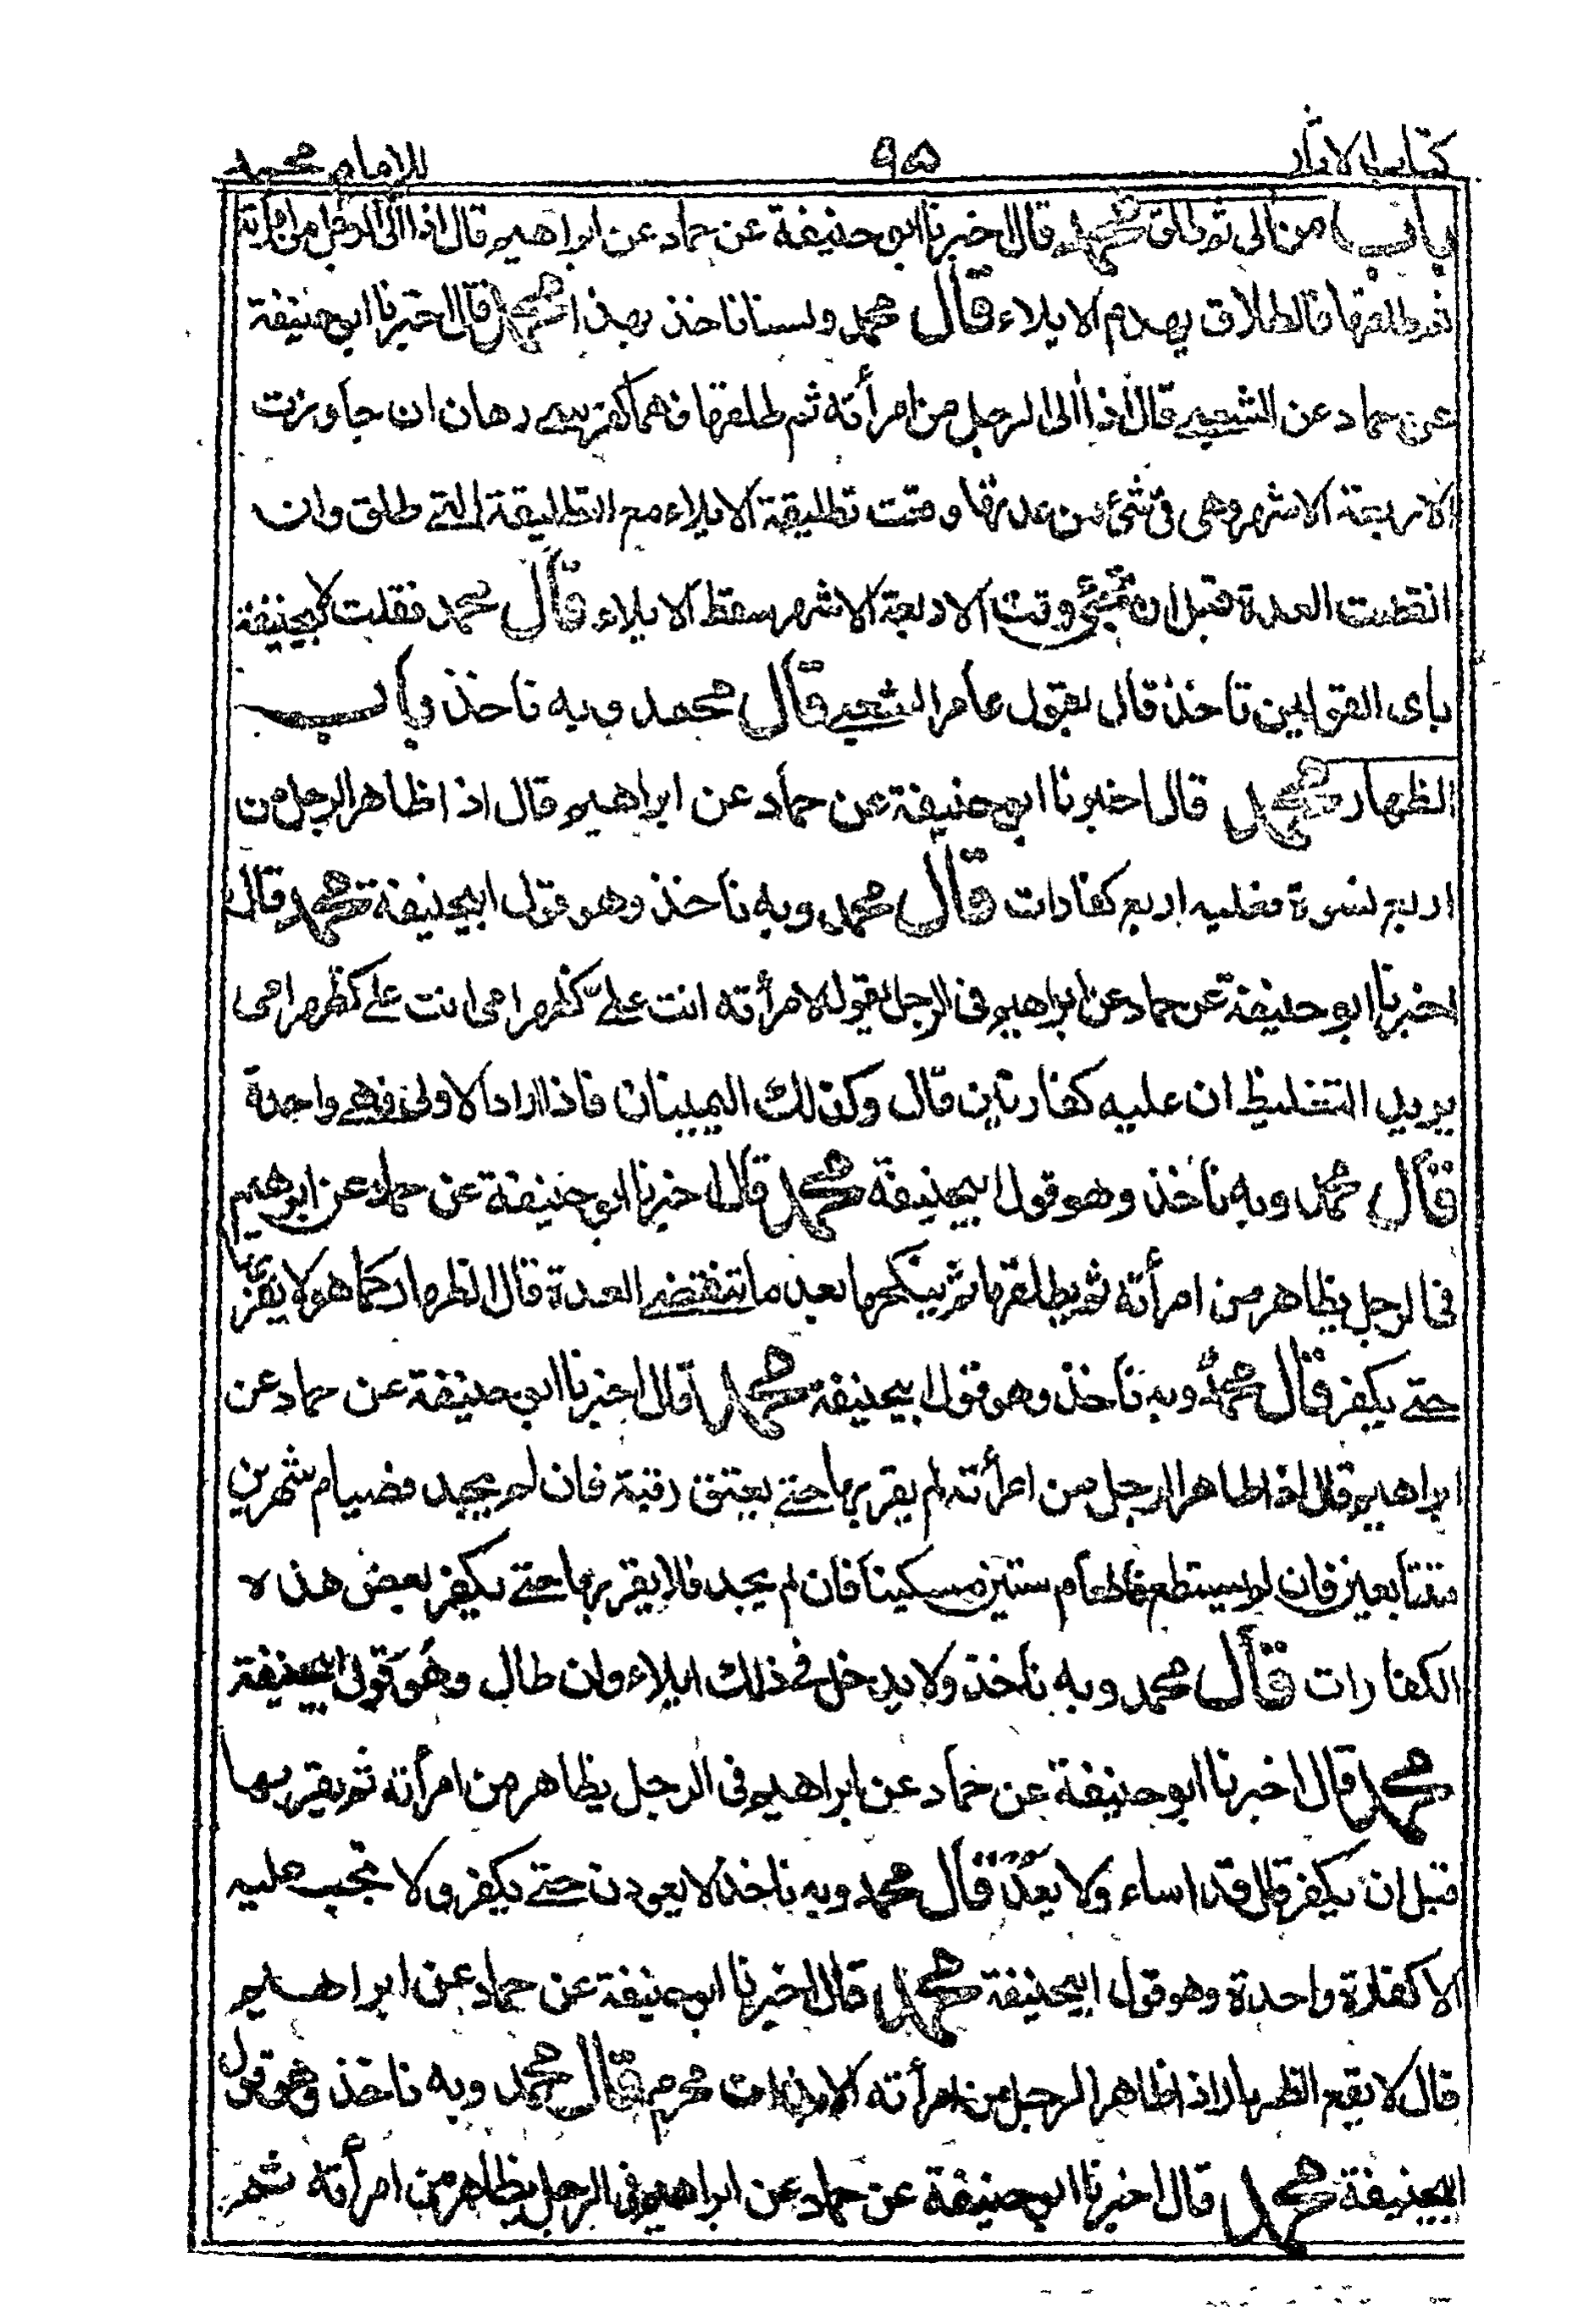 كتاب الاثار ٩٥ للامام محمد
باب من الى ثم طلق محمد قال اخبرنا ابو حنيفة عن حماد عن ابراهيم قال اذا الى الرجل من امرأته
ثم طلقها فالطلاق يهدم الايلاء قال محمد ولسنا ناخذ بهذا محمد قال اخبرنا ابو حنيفة
عن حماد عن الشعبي قال اذا الى الرجل من امرأته ثم طلقها فهما كفرسي رهان ان جاوزت
الاربعة الاشهر وهي في شئ من عدتها وقعت تطليقة الايلاء مع التطليقة التي طلق وان
انقطت العدة قبل ان تجئ وقت الاربعة الاشهر سقط الايلاء قال محمد فقلت لابيحنيفة
باى القولين تاخذ قال بقول عامر الشعبي قال محمد وبه ناخذ باب
الظهار محمد قال اخبرنا ابو حنيفة عن حماد عن ابراهيم قال اذا ظاهر الرجل من
اربع نسوة فعليه اربع كفارات قال محمد وبه ناخذ وهو قول ابيحنيفة محمد قال
اخبرنا ابو حنيفة عن حماد عن ابراهيم في الرجل يقول لامرأته انت علي كظهر امى انت علي كظهر امى
يريد التغليظ ان عليه كفارتين قال وكذلك اليمينان فاذا اراد الاولى فهي واحدة
قال محمد وبه ناخذ وهو قول ابيحنيفة محمد قال اخبرنا ابو حنيفة عن حماد عن ابرهيم
في الرجل يظاهر من امرأته ثم يطلقها ثم ينكحها بعد ما تنقضي العدة قال الظهار كما هو لا يقربها
حتى يكفر قال محمد وبه ناخذ وهو قول ابيحنيفة محمد قال اخبرنا ابو حنيفة عن حماد عن
ابراهيم قال اذا ظاهر الرجل من امرأته لم يقربها حتى يعتق رقبة فان لم يجد فصيام شهرين
متتابعين فان لم يستطع فاطعام ستين مسكينا فان لم يجد فلا يقربها حتى يكفر بعض هذه
الكفارات قال محمد وبه ناخذ ولا يدخل في ذلك ايلاء وان طال وهو قول ابيحنيفة
محمد قال اخبرنا ابو حنيفة عن حماد عن ابراهيم في الرجل يظاهر من امرأته ثم يقربها
قبل ان يكفر قال قد اساء ولا يعد قال محمد وبه ناخذ لا يعودن حتى يكفر ولا تجب عليه
الا كفارة واحدة وهو قول ابيحنيفة محمد قال اخبرنا ابو حنيفة عن حماد عن ابراهيم
قال لا يقع الظهار اذا ظاهر الرجل من امرأته الا بذات محرم قال محمد وبه ناخذ وهو قول
ابيحنيفة محمد قال اخبرنا ابو حنيفة عن حماد عن ابراهيم في الرجل يظاهر من امرأته شهر